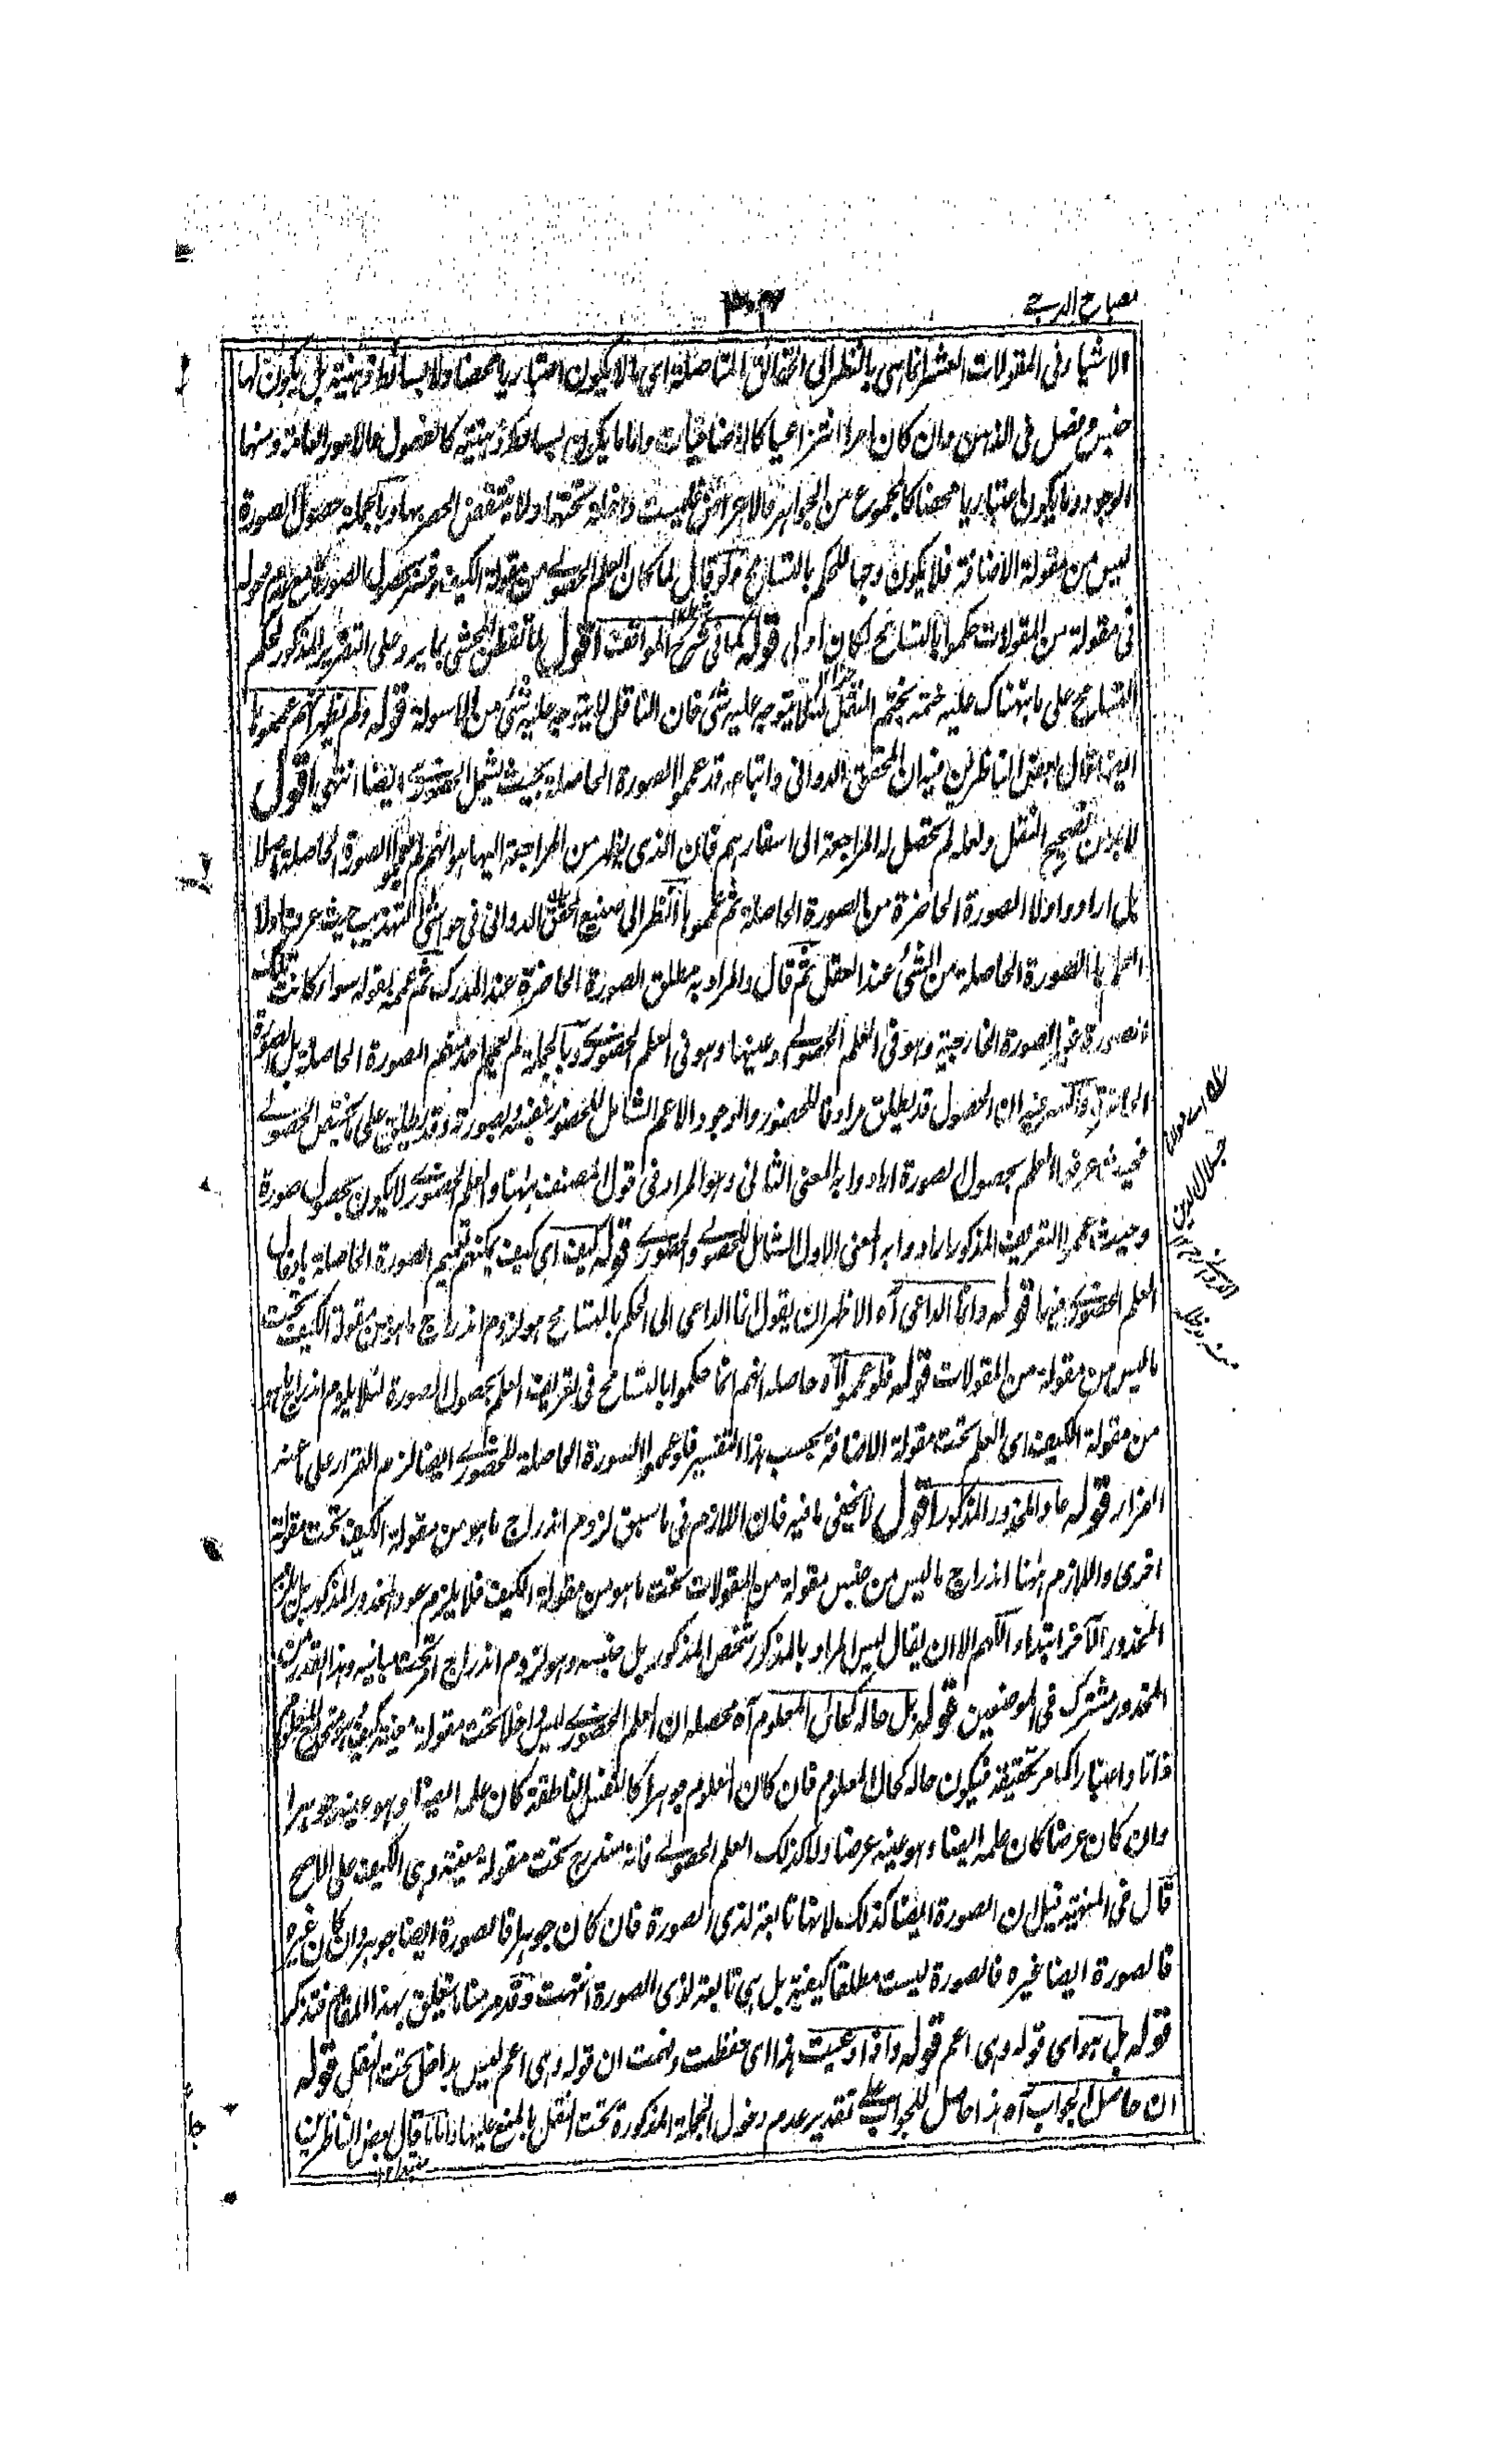 مصباح الدجى
٣٠٢
الاشياء فى المقولات العشر انما هى بالنظر الى الحقائق المتاصلة اى ما لا يكون اعتباريا محضا ولا بسائط ذهنية بل يكون لها
جنس وفصل فى الذهن وان كان امرا انتزاعيا كالاضافيات واما ما يكون بسائط ذهنية كالفصول والامور العامة ومنها
الوجود وما يكون اعتباريا محضا كالمجموع من الجواهر والاعراض فليست داخلة تحتها ولا ينتقض الحصر بها وبالجملة حصول الصورة
ليس من مقولة الاضافة فلا يكون وجها للحكم بالتسامح ولو قال لما كان العلم الحصولى من مقولة الكيف وفسر بحصول الصورة مع عدم دخوله
فى مقولة من المقولات حكموا بالتسامح لكان اولى قوله كما فى شرح المواقف اقول لما تفطن المحشى بما يرد على التقرير المذكور لحكم
التسامح على ما نبهناك عليه ختمه بختم النقل لئلا يتوجه عليه شئ فان الناقل لا يتوجه عليه شئ من الاسولة قوله ولم يظهر انهم عمموها
ايضا قال بعض الناظرين فيه ان المحقق الدوانى واتباعه قد عمموا الصورة الحاصلة بحيث يشمل الحضورى ايضا انتهى اقول
لا بد من تصحيح النقل ولعله لم يحصل له المراجعة الى اسفارهم فان الذى يظهر من المراجعة اليها هو انهم لم يعمموا الصورة الحاصلة اصلا
بل ارادوا اولا الصورة الحاضرة من الصورة الحاصلة ثم عمموها انظر الى صنيع المحقق الدوانى فى حواشى التهذيب حيث عرف اولا
العلم بالصورة الحاصلة من الشئ عند العقل ثم قال والمراد به مطلق الصورة الحاضرة عند المدرك ثم عممه بقوله سواء كانت تلك
الصورة غير الصورة الخارجية وهو فى العلم الحصولى او عينها وهو فى العلم الحضورى وبالجملة لم يعمم احد منهم الصورة الحاصلة بل الصورة
الحاضرة والسر فيه ان الحصول قد يطلق مرادفا للحضور والوجود الاعم الشامل للحضور بنفسه وبصورته وقد يطلق على ما يختص الحصولى
فحيث عرفوا العلم بحصول الصورة ارادوا به المعنى الثانى وهو المراد فى قول المصنف ههنا والعلم الحضورى لا يكون بحصول صورة
وحيث عمموا التعريف المذكور ارادوا به المعنى الاول الشامل للحصولى والحضورى قوله كيف اى كيف يمكنهم تعميم الصورة الحاصلة بادخال
العلم الحضورى فيها قوله وانما الداعى آه الاظهر ان يقول انما الداعى الى الحكم بالتسامح هو لزوم اندراج ما هو من مقولة الكيف تحت
ما ليس من مقولة من المقولات قوله فلو عمموا آه حاصله انهم انما حكموا بالتسامح فى تعريف العلم بحصول الصورة لئلا يلزم اندراج ما هو
من مقولة الكيف اى العلم تحت مقولة الاضافة بحسب هذا التفسير فلو عمموا الصورة الحاصلة للحضورى ايضا لزم القرار على ما عنه
الفرار قوله عاد المحذور المذكور اقول لا يخفى ما فيه فان اللازم فى ما سبق لزوم اندراج ما هو من مقولة الكيف تحت مقولة
اخرى واللازم ههنا اندراج ما ليس من جنس مقولة من المقولات تحت ما هو من مقولة الكيف فلا يلزم عود المحذور المذكور بل يلزم
المحذور الآخر ابتداء اللهم الا ان يقال ليس المراد بالمذكور شخص المذكور بل جنسه وهو لزوم اندراج امر تحت مباينه وهذا القدر من
المحذور مشترك فى الموضعين قوله بل حاله كحال المعلوم آه محصله ان العلم الحضورى ليس داخلا تحت مقولة معينة كيف وهو متحد مع المعلوم
ذاتا واعتبارا كما مر تحقيقه فيكون حاله كحال المعلوم فان كان المعلوم جوهرا كالنفس الناطقة كان علمه ايضا وهو عينه جوهرا
وان كان عرضا كان علمه ايضا وهو عينه عرضا ولا كذلك العلم الحصولى فانه مندرج تحت مقولة معينة وهى الكيف على الاصح
قال فى المنهية قيل ان الصورة ايضا كذلك لانها تابعة لذى الصورة فان كان جوهرا فالصورة ايضا جوهر وان كان غيره
فالصورة ايضا غيره فالصورة ليست مطلقا كيفية بل هى تابعة لذى الصورة انتهت وقد مر منا ما يتعلق بهذا المقام فتذكر
قوله بل هو اى قوله وهى اعم قوله واذا وعيت هذا اى حفظت وفهمت ان قوله وهى اعم ليس بداخل تحت النقل قوله
ان حاصل الجواب آه هذا حاصل للجواب على تقدير عدم دخول الجملة المذكورة تحت النقل بالمنع عليها واما ما قال بعض الناظرين
جلال الدين